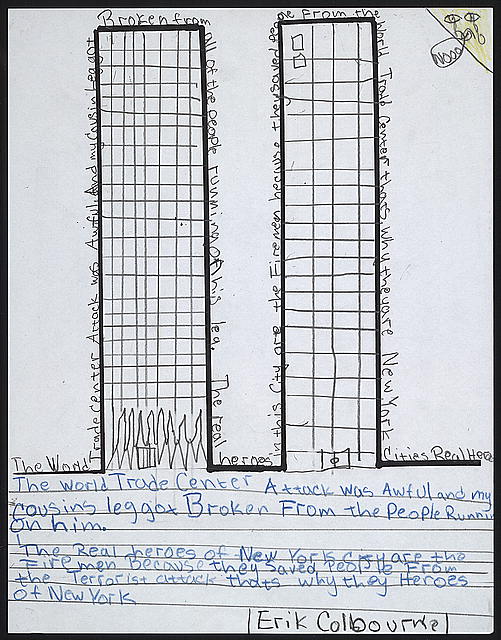 The World
Trade Center Attack was Awful. And my cousin Leg got
Broken from
all of the people running of his leg. The real
heroes
in this City are the Firemen because they saved people
From the
World Trade Center thats why they are New York
Cities Real Hero
The world Trade Center Attack was Awful and my
cousins leg got Broken From the People Runnin
on him.
The Real heroes of New York city are the
Fire men Because they saved People From
the Terrorist attack thats why they Heroes
of New York
Erik Colbourne